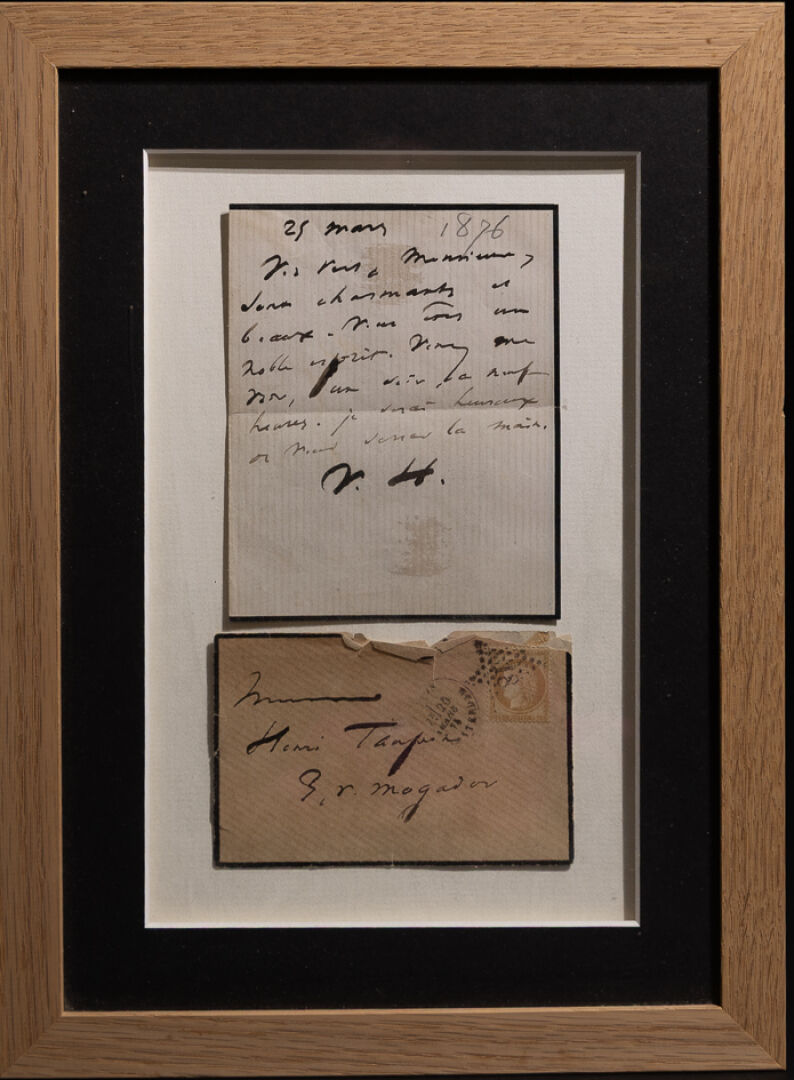 25 mars 1876
Vos vers, Monsieur,
sont charmants et
beaux. Vous êtes un
noble esprit. Venez me
voir, un soir, à neuf
heures. je serai heureux
de vous serrer la main.
V. H.
Monsieur
Henri
r. mogador